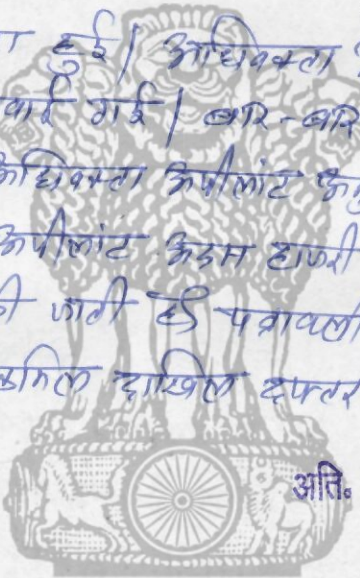 हुई | अधिवक्ता
गई | बार-बार
अधिवक्ता अपीलांट
अपीलांट अदम हाजरी
की जाती है पत्रावली
दाखिल दफ्तर
अति॰